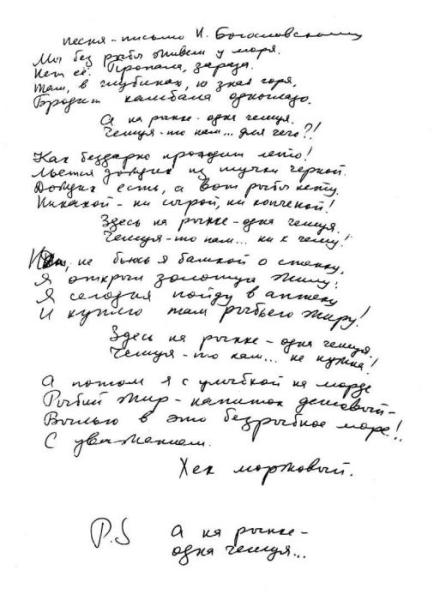 песня-письмо Н. Богословскому
Мы без рыбы живём у моря.
Нет её. Пропала, зараза.
Там, в глубинах, ю зная горя,
Бродит камбала одноглазо.
А на рынке - одна чешуя.
Чешуя-то нам... для чего?!
Как бездарно проходит лето!
Льётся дождик из тучки чёрной.
Дождик есть, а вот рыбы нету.
Никакой - ни сырой, ни копчёной!
Здесь на рынке - одна чешуя.
Чешуя-то нам... ни к чему!
Но, не бьюсь я башкой о стенку,
Я открыл золотую жилу:
Я сегодня пойду в аптеку
И куплю там рыбьего жиру!
Здесь на рынке - одна чешуя.
Чешуя-то нам... не нужна!
А потом я с улыбкой на морде
Рыбий жир - напиток дешёвый -
Вылью в это безрыбное море!..
С уважением.
Хек моржовый.
P.S А на рынке -
одна чешуя...